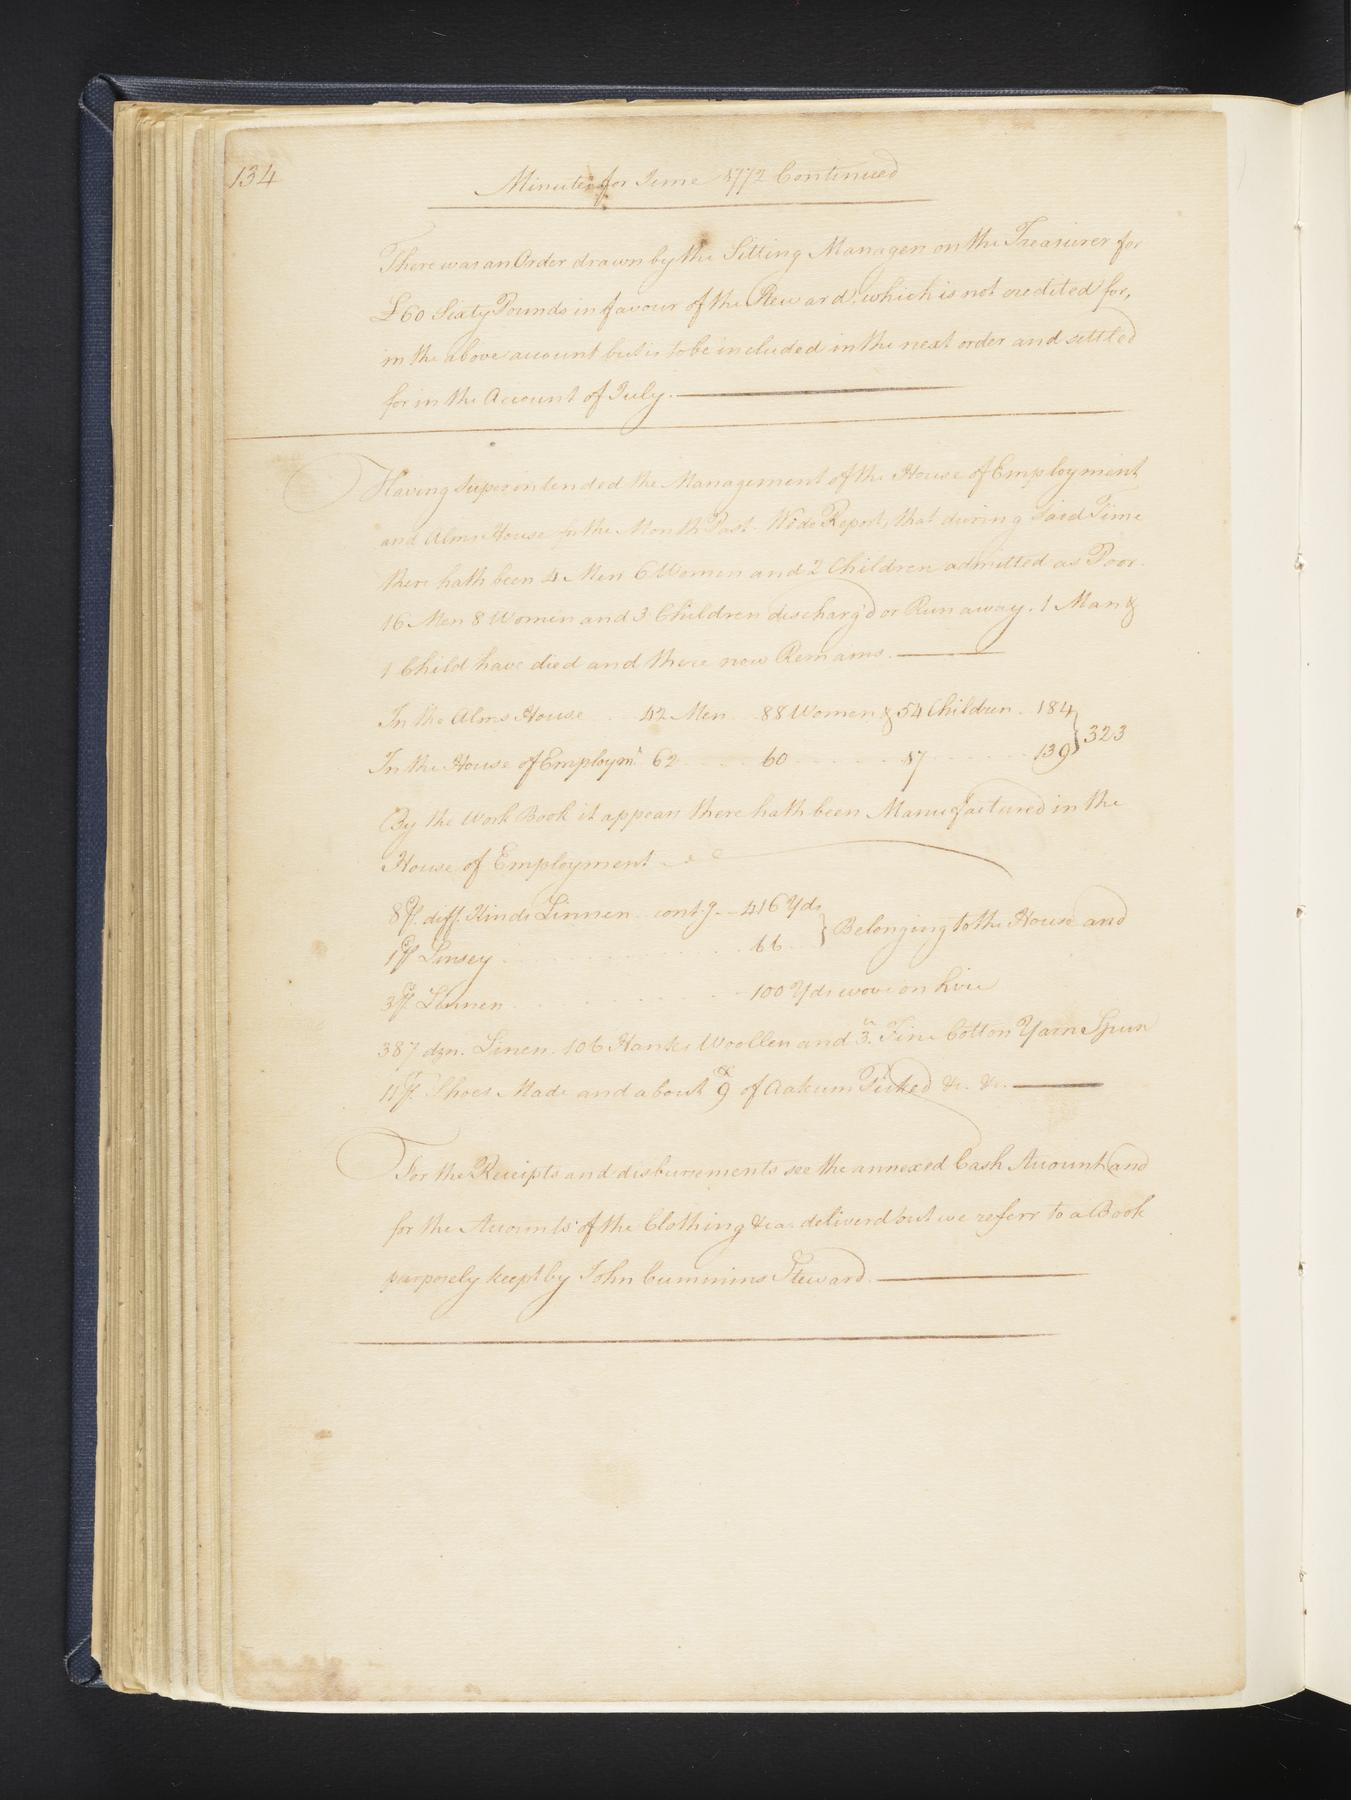 134
Minutes for June 1772 Continued
There was an Order drawn by the Sitting Managers on the Treasurer for
£60 Sixty Pounds in favour of the Steward, which is not credited for,
in the above account but is to be included in the next order and settled
for in the Account of July.
Having Superintended the Management of the House of Employment
and Alms House for the Month Past. We do Report, that during said Time
there hath been 4 Men 6 Women and 2 Children admitted as Poor.
16 Men 8 Women and 3 Children discharg'd or Run away. 1 Man &
1 Child have died and there now Remains.
In the Alms House . . 42 Men . . 88 Women & 54 Children . 184
In the House of Employmt. 62 . . . . 60 . . . . . . 17 . . . . . . 139 } 323
By the Work Book it appears there hath been Manufactured in the
House of Employment
8 ps. diff. Kinds Linnen contg. -- 416 Yds
1 ps Linsey . . . . . . . . . . 66 . . } Belonging to the House and
3 ps. Linnen . . . . . . . . . 100 Yds wove on hire
387 dzn. Linen. 106 Hanks Woollen and 3. Fine Cotton Yarn Spun
11 pr. Shoes Made and about 9 of Oakum Picked &c. &c.
For the Receipts and disbursements see the annexed Cash Account and
for the Accounts of the Clothing &ca. deliverd out we referr to a Book
purposely keept by John Cummins Steward.